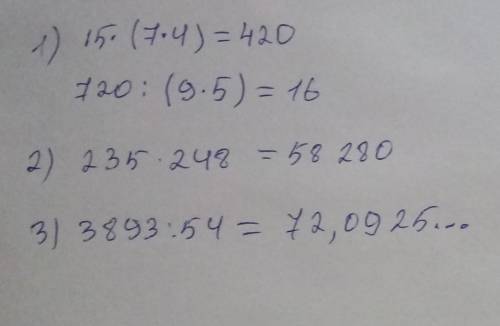 1) 15·(7·4)=420
720:(9·5)=16
2) 235·248 =58 280
3) 3893:54= 72,0925...